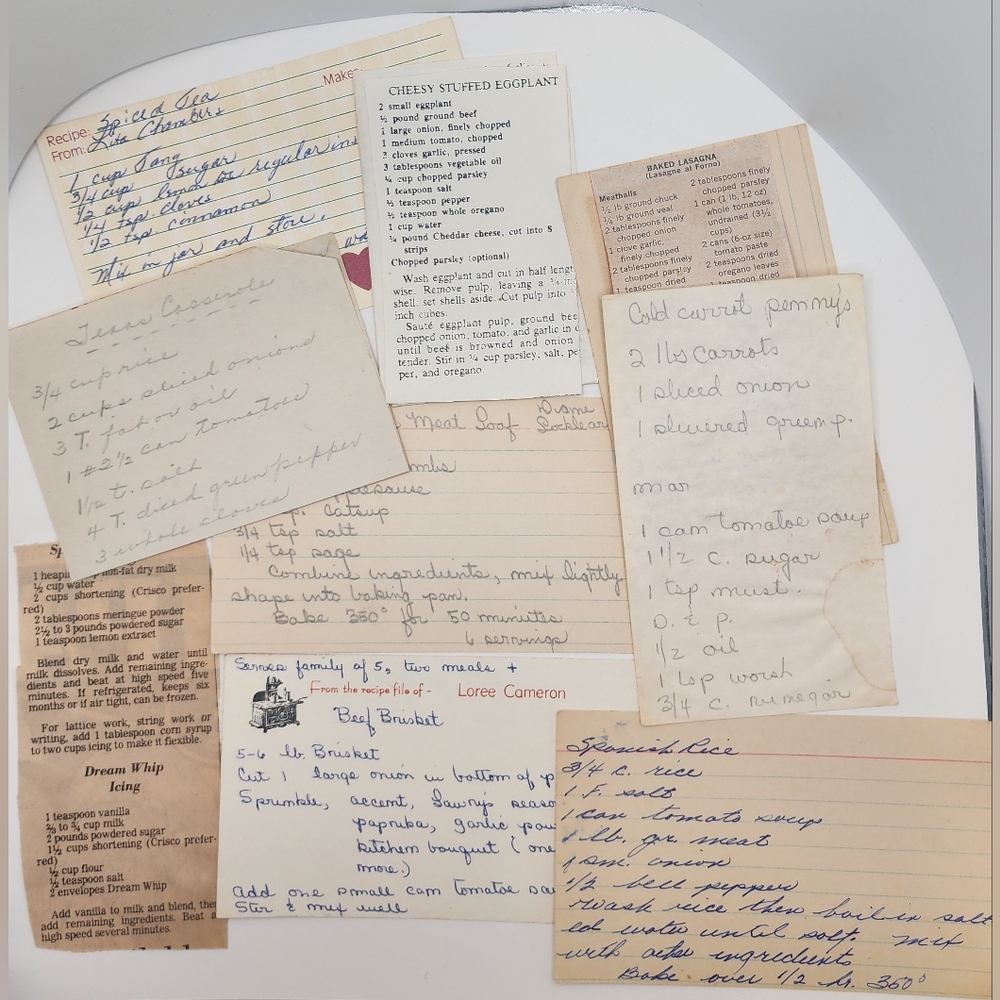 Makes
Recipe: Spiced Tea
From: Rita Chambers
1 cup Tang
3/4 cup sugar
1/2 cup lemon or regular ins
1/4 tsp. cloves
1/2 tsp. cinnamon
Mix in jar and store.
CHEESY STUFFED EGGPLANT
2 small eggplant
½ pound ground beef
1 large onion, finely chopped
1 medium tomato, chopped
2 cloves garlic, pressed
3 tablespoons vegetable oil
¼ cup chopped parsley
1 teaspoon salt
½ teaspoon pepper
½ teaspoon whole oregano
1 cup water
¼ pound Cheddar cheese, cut into 8
strips
Chopped parsley (optional)
Wash eggplant and cut in half length
wise. Remove pulp, leaving a ¼-in
shell, set shells aside. Cut pulp into
inch cubes.
Sauté eggplant pulp, ground bee
chopped onion, tomato, and garlic in
until beef is browned and onion
tender. Stir in ¼ cup parsley, salt, pe
per, and oregano.
BAKED LASAGNA
(Lasagne al Forno)
Meatballs
½ lb ground chuck
¼ lb ground veal
2 tablespoons finely
chopped onion
1 clove garlic,
finely chopped
2 tablespoons finely
chopped parsley
1 teaspoon dried
2 tablespoons finely
chopped parsley
1 can (1 lb, 12 oz)
whole tomatoes,
undrained (3½
cups)
2 cans (6-oz size)
tomato paste
2 teaspoons dried
oregano leaves
1 teaspoon dried
Texas Casserole
3/4 cup rice
2 cups sliced onions
3 T. fat or oil
1 #2½ can tomatoes
1½ t. salt
4 T. diced green pepper
3 whole cloves
Meat Loaf Diane
Locklear
mbs
plesauce
p. catsup
3/4 tsp salt
1/4 tsp sage
Combine ingredients, mix lightly
shape into baking pan.
Bake 350° for 50 minutes
6 servings
Cold carrot pennny's
2 lbs carrots
1 sliced onion
1 slivered green p.
mar
1 can tomatoe soup
1 1/2 C. sugar
1 tsp must.
1/2 oil
1 tsp worsh
3/4 C. vinegar
Sp
1 heapi non-fat dry milk
½ cup water
2 cups shortening (Crisco prefer-
red)
2 tablespoons meringue powder
2½ to 3 pounds powdered sugar
1 teaspoon lemon extract
Blend dry milk and water until
milk dissolves. Add remaining ingre-
dients and beat at high speed five
minutes. If refrigerated, keeps six
months or if air tight, can be frozen.
For lattice work, string work or
writing, add 1 tablespoon corn syrup
to two cups icing to make it flexible.
Dream Whip
Icing
1 teaspoon vanilla
⅔ to ¾ cup milk
2 pounds powdered sugar
1½ cups shortening (Crisco prefer-
red)
½ cup flour
¼ teaspoon salt
2 envelopes Dream Whip
Add vanilla to milk and blend, then
add remaining ingredients. Beat a
high speed several minutes.
Serves family of 5, two meals +
From the recipe file of - Loree Cameron
Beef Brisket
5-6 lb. Brisket
Cut 1 large onion in bottom of p
Sprinkle, accent, Lawry's seaso
paprika, garlic pow
kitchen bouquet (one
more.)
add one small can tomatoe sau
Stir & mix well
Spanish Rice
3/4 c. rice
1 T. salt
1 can tomato soup
1 lb. gr. meat
1 sm. onion
1/2 bell pepper
Wash rice then boil in salt
ed water until soft. mix
with other ingredients
Bake over 1/2 hr. 350°